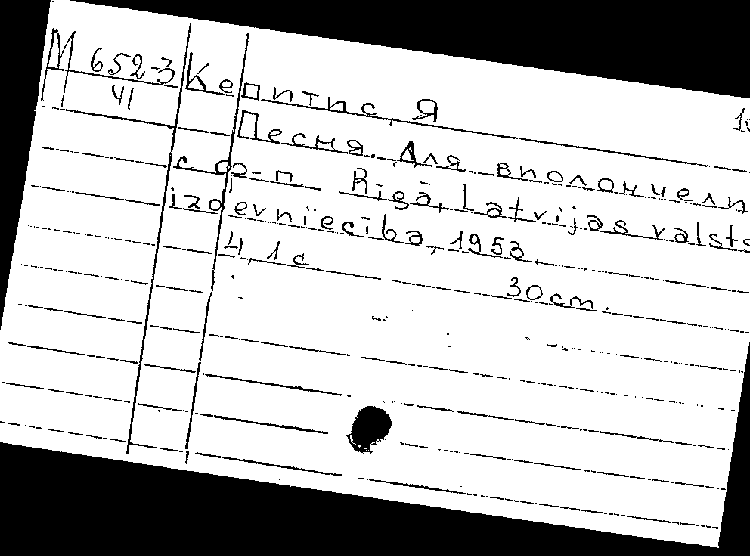 М 652-3 Кепитис, Я
VI
Песня. Для виолончели
с ф-п Rigā, Latvijas valsts
izdevniecība, 1953.
4, 1 с 30 cm.